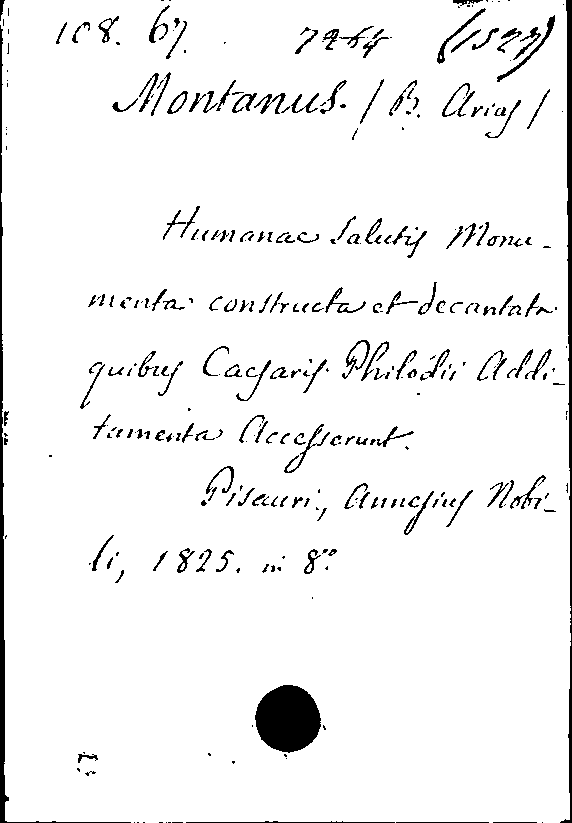 108. 67. 7264 (1527)
Montanus. / B. Arias /
Humanae Salutis Monu-
menta constructa et decantata
quibus Caesaris Philodii Addi-
tamenta Accesserunt.
Pisauri, Annesius Nobi-
li, 1825. in 8º.